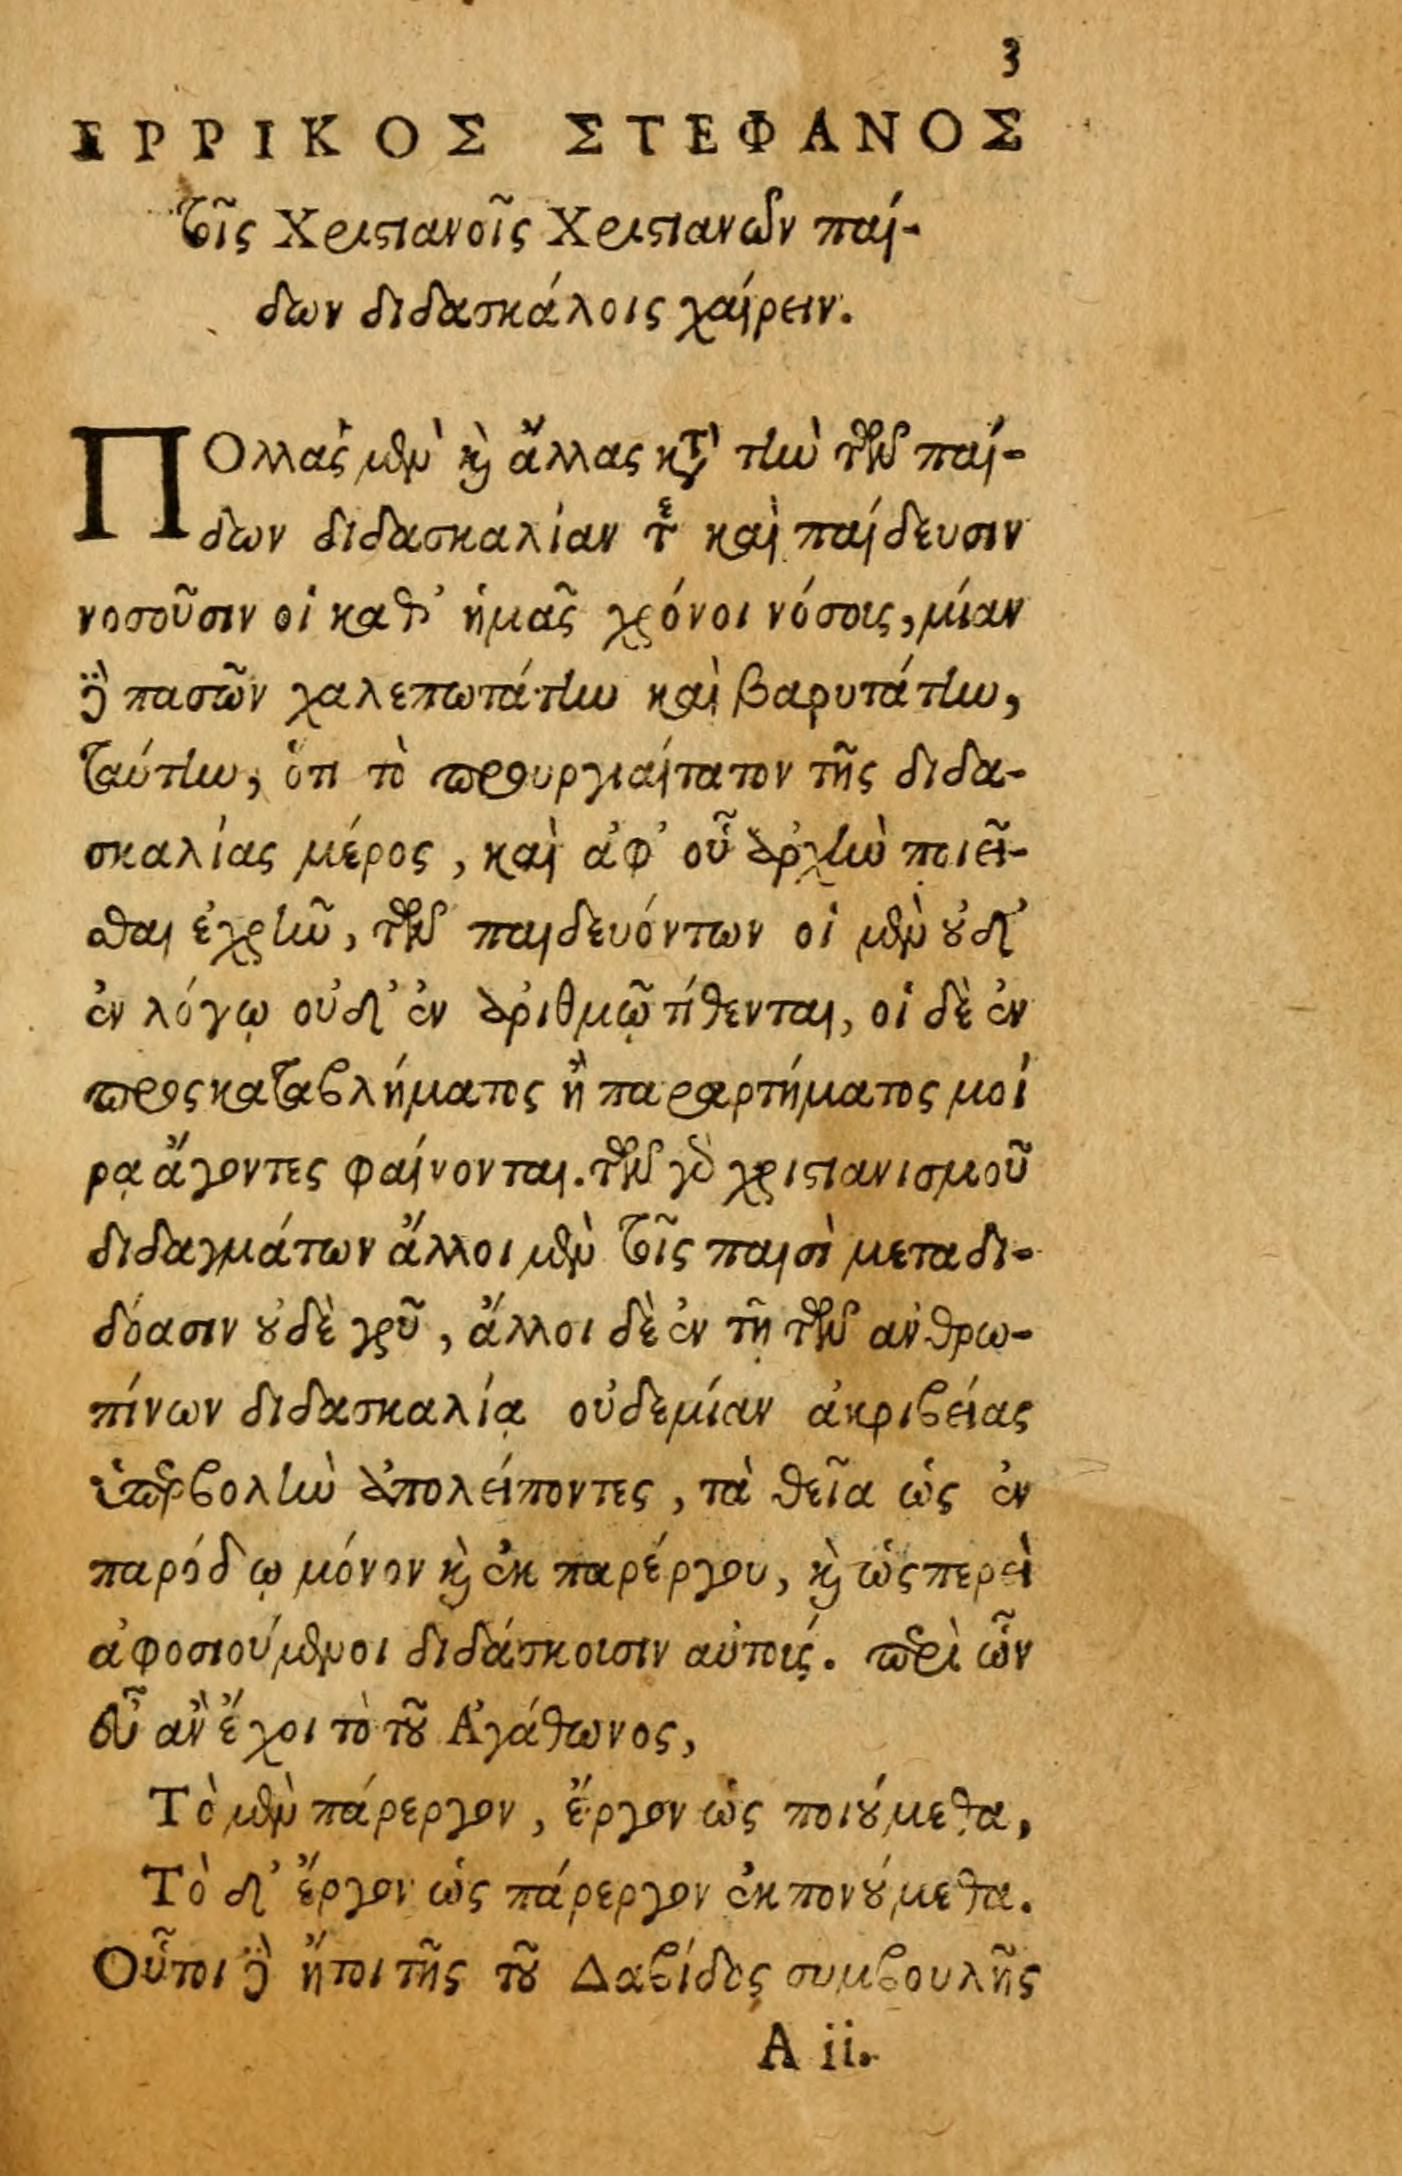 3
ΕΡΡΙΚΟΣ ΣΤΕΦΑΝΟΣ
τοῖς Χριστιανοῖς Χριστιανῶν παί-
δων διδασκάλοις χαίρειν.
ΠΟλλαὶς μὲν καὶ ἄλλαις κατὰ τὴν τῶν παί-
δων διδασκαλίαν τε καὶ παίδευσιν
νοσοῦσιν οἱ καθ' ἡμᾶς χρόνοι νόσοις, μίαν
δὲ πασῶν χαλεπωτάτην καὶ βαρυτάτην,
ταύτην, ὅτι τὸ προυργιαίτατον τῆς διδα-
σκαλίας μέρος, καὶ ἀφ' οὗ ἀρχὴν ποιεῖ-
σθαι ἐχρῆν, τῶν παιδευόντων οἱ μὲν οὐδ'
ἐν λόγῳ οὐδ' ἐν ἀριθμῷ τίθενται, οἱ δὲ ἐν
προσκαταβλήματος ἢ παραρτήματος μοί
ρᾳ ἄγοντες φαίνονται. τῶν γὰρ χριστιανισμοῦ
διδαγμάτων ἄλλοι μὲν τοῖς παισὶ μεταδι-
δόασιν οὐδὲ γρῦ, ἄλλοι δὲ ἐν τῇ τῶν ἀνθρω-
πίνων διδασκαλίᾳ οὐδεμίαν ἀκριβείας
ὑπερβολὴν ἀπολείποντες, τὰ θεῖα ὡς ἐν
παρόδῳ μόνον καὶ ἐκ παρέργου, καὶ ὡσπερεὶ
ἀφοσιούμενοι διδάσκουσιν αὐτούς. περὶ ὧν
εὖ ἂν ἔχοι τὸ τοῦ Ἀγάθωνος,
Τὸ μὲν πάρεργον, ἔργον ὡς ποιούμεθα,
Τὸ δ' ἔργον ὡς πάρεργον ἐκπονούμεθα.
Οὗτοι δὲ ἤτοι τῆς τοῦ Δαβίδος συμβουλῆς
A ii.